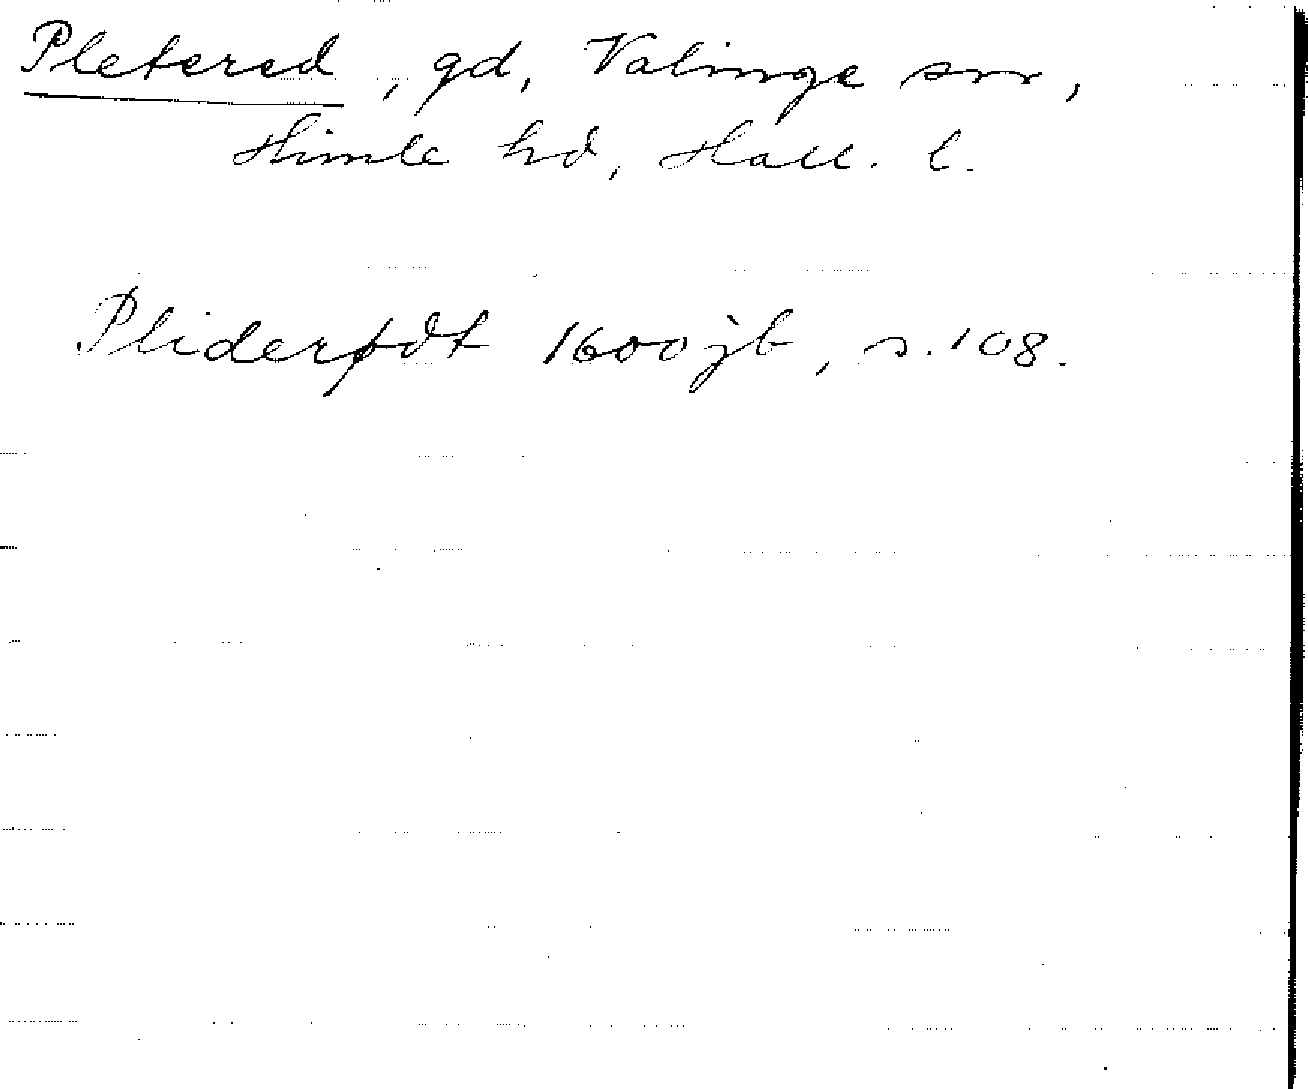 Pletered, gd, Valinge sn,
Himle hd, Hall. l.
Pliderødt 1600 jb, s. 108.